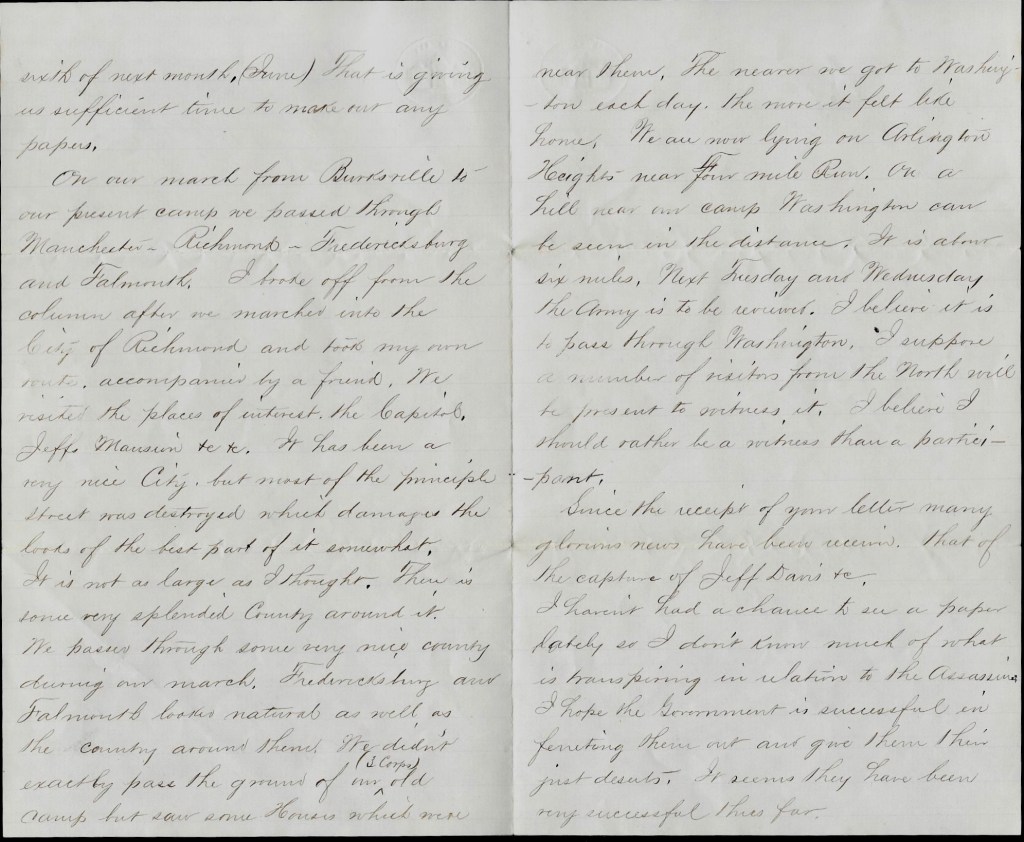 sixth of next month, (June) That is giving
us sufficient time to make out any
papers.
On our march from Burksville to
our present camp we passed through
Manchester – Richmond – Fredericksburg
and Falmouth. I broke off from the
column after we marched into the
City of Richmond and took my own
route, accompanied by a friend. We
visited the places of interest. the Capitol,
Jeffs Mansion &c &c. It has been a
very nice City. but most of the principle
street was destroyed which damages the
looks of the best part of it somewhat.
It is not as large as I thought. There is
some very splendid County around it.
We passed through some very nice county
during our march. Fredericksburg and
Falmouth looked natural as well as
the country around them. We didn't
exactly pass the ground of our ^ (1 Corps) old
camp but saw some Houses which were
near them. The nearer we got to Washing-
-ton each day. the more it felt like
home. We are now lying on Arlington
Heights near Four mile Run. On a
hill near our camp Washington can
be seen in the distance. It is about
six miles. Next Tuesday and Wednesday
the Army is to be reviewed. I believe it is
to pass through Washington. I suppose
a number of visitors from the North will
be present to witness it. I believe I
should rather be a witness than a partici-
-pant.
Since the receipt of your letter many
glorious news have been received. that of
the capture of Jeff Davis &c.
I haven't had a chance to see a paper
lately so I don't know much of what
is transpiring in relation to the Assassins
I hope the Government is successful in
ferreting them out and give them their
just deserts. It seems they have been
very successful thus far.